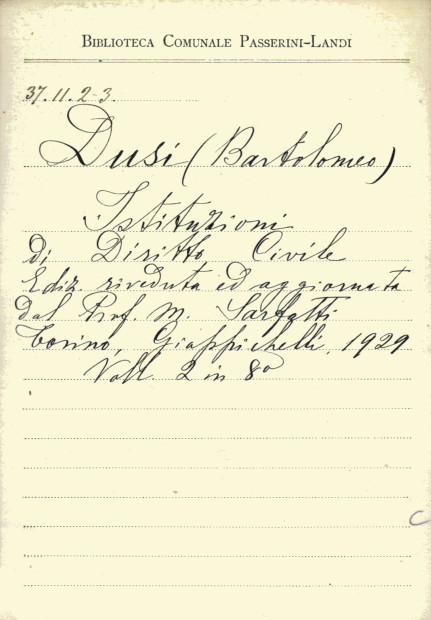 BIBLIOTECA COMUNALE PASSERINI-LANDI
37.11.2-3.
Dusi (Bartolomeo)
Istituzioni
di Diritto Civile
Ediz. riveduta ed aggiornata
dal Prof. M. Sarfatti
Torino, Giappichelli, 1929
Voll. 2 in 8º